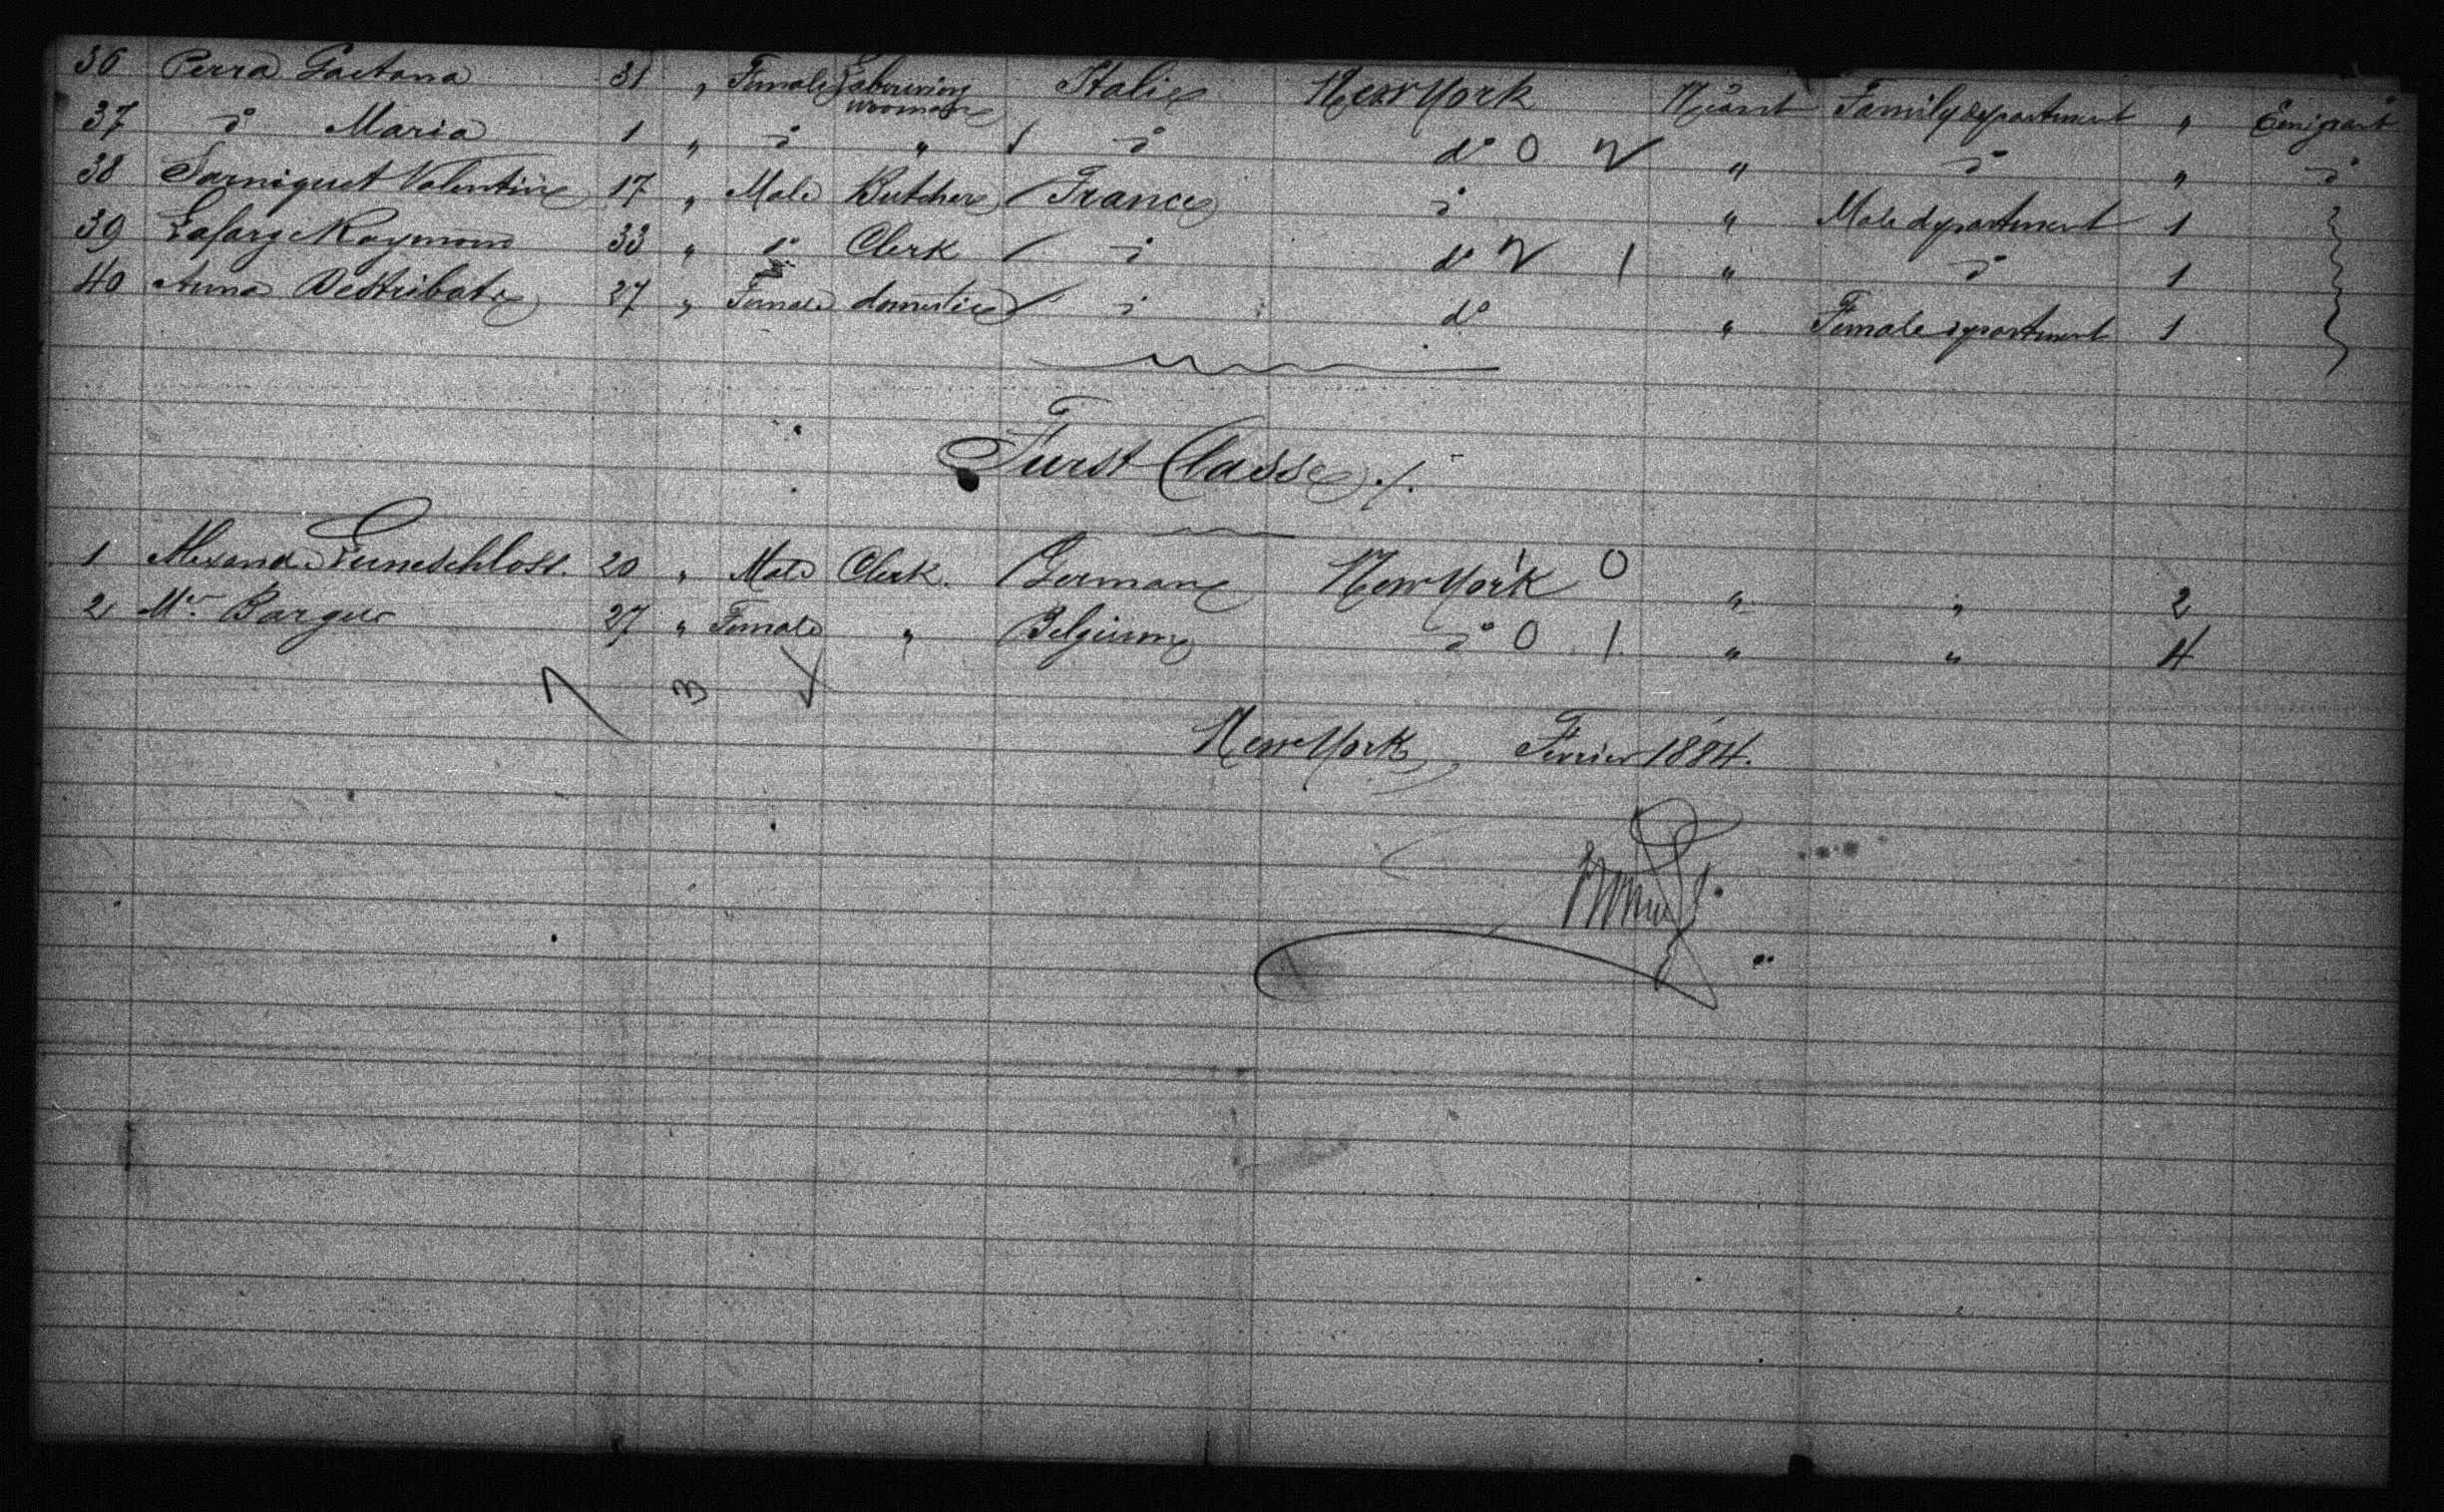 36 Perra Gaetana 31 " Female Labouring woman Italie New York Néant Family department " Emigrant
37 do Maria 1 " do " do do 0 " do " do
38 Sarniguet Valentin 17 " Male Butcher France do " Male department 1
39 Lafarge Raymond 33 " do Clerk do do 1 " do 1
40 Anna 27 " Female domestic do do " Female department 1
Furst Classe ./.
1 20 " Male Clerk. German New York 0 " " 2
2 Mr. Bargue 27 " Female " Belgium do 0 1 " " 4
New York, Fevrier 1884.